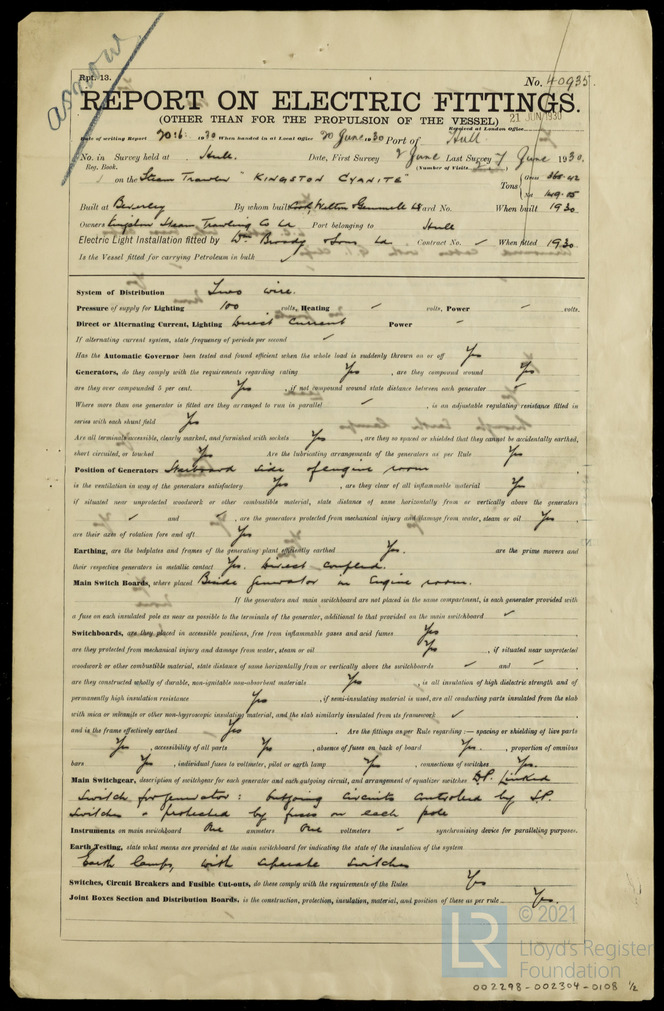 arrow
Rpt. 13.
No. 40935.
REPORT ON ELECTRIC FITTINGS.
(OTHER THAN FOR THE PROPULSION OF THE VESSEL) 21 JUN 1930
Received at London Office
Date of writing Report 20:6: 1930 When handed in at Local Office 20 June. 30 Port of Hull
No. in Survey held at Hull. Date, First Survey 2 June Last Survey 7 June 1930.
Reg. Book. (Number of Visits
on the Steam Trawler "KINGSTON CYANITE" Tons Gross
Net
Built at Beverley By whom built Cook, Welton & Gemmell Ld Yard No. When built 1930
Owners Kingston Steam Trawling Co Ld Port belonging to Hull
Electric Light Installation fitted by Wm Broady & Sons Ld Contract No. ✓ When fitted 1930
Is the Vessel fitted for carrying Petroleum in bulk
System of Distribution Two wire.
Pressure of supply for Lighting 100 volts, Heating ✓ volts, Power ✓ volts.
Direct or Alternating Current, Lighting Direct Current Power ✓
If alternating current system, state frequency of periods per second ✓
Has the Automatic Governor been tested and found efficient when the whole load is suddenly thrown on or off Yes
Generators, do they comply with the requirements regarding rating Yes, are they compound wound Yes
are they over compounded 5 per cent. Yes, if not compound wound state distance between each generator ✓
Where more than one generator is fitted are they arranged to run in parallel ✓, is an adjustable regulating resistance fitted in
series with each shunt field Yes
Are all terminals accessible, clearly marked, and furnished with sockets Yes, are they so spaced or shielded that they cannot be accidentally earthed,
short circuited, or touched Yes Are the lubricating arrangements of the generators as per Rule Yes
Position of Generators Starboard side of engine room
is the ventilation in way of the generators satisfactory Yes, are they clear of all inflammable material Yes
if situated near unprotected woodwork or other combustible material, state distance of same horizontally from or vertically above the generators
✓ and ✓, are the generators protected from mechanical injury and damage from water, steam or oil Yes,
are their axes of rotation fore and aft Yes
Earthing, are the bedplates and frames of the generating plant efficiently earthed Yes. are the prime movers and
their respective generators in metallic contact Yes. Direct coupled.
Main Switch Boards, where placed Beside generator in Engine room.
If the generators and main switchboard are not placed in the same compartment, is each generator provided with
a fuse on each insulated pole as near as possible to the terminals of the generator, additional to that provided on the main switchboard ✓
Switchboards, are they placed in accessible positions, free from inflammable gases and acid fumes Yes
are they protected from mechanical injury and damage from water, steam or oil Yes, if situated near unprotected
woodwork or other combustible material, state distance of same horizontally from or vertically above the switchboards ✓ and ✓,
are they constructed wholly of durable, non-ignitable non-absorbent materials Yes, is all insulation of high dielectric strength and of
permanently high insulation resistance Yes, if semi-insulating material is used, are all conducting parts insulated from the slab
with mica or micanite or other non-hygroscopic insulating material, and the slab similarly insulated from its framework ✓,
and is the frame effectively earthed Yes. Are the fittings as per Rule regarding:— spacing or shielding of live parts
Yes, accessibility of all parts Yes, absence of fuses on back of board Yes., proportion of omnibus
bars Yes, individual fuses to voltmeter, pilot or earth lamp Yes, connections of switches Yes.
Main Switchgear, description of switchgear for each generator and each outgoing circuit, and arrangement of equalizer switches D.P. Linked
switch for generator: outgoing circuits controlled by S.P.
switches & protected by fuses on each pole
Instruments on main switchboard One ammeters One voltmeters ✓ synchronising device for paralleling purposes.
Earth Testing, state what means are provided at the main switchboard for indicating the state of the insulation of the system
Earth lamps, with separate switches
Switches, Circuit Breakers and Fusible Cut-outs, do these comply with the requirements of the Rules Yes
Joint Boxes Section and Distribution Boards, is the construction, protection, insulation, material, and position of these as per rule Yes.
LR
© 2021
Lloyd's Register
Foundation
002298-002304-0108 1/2